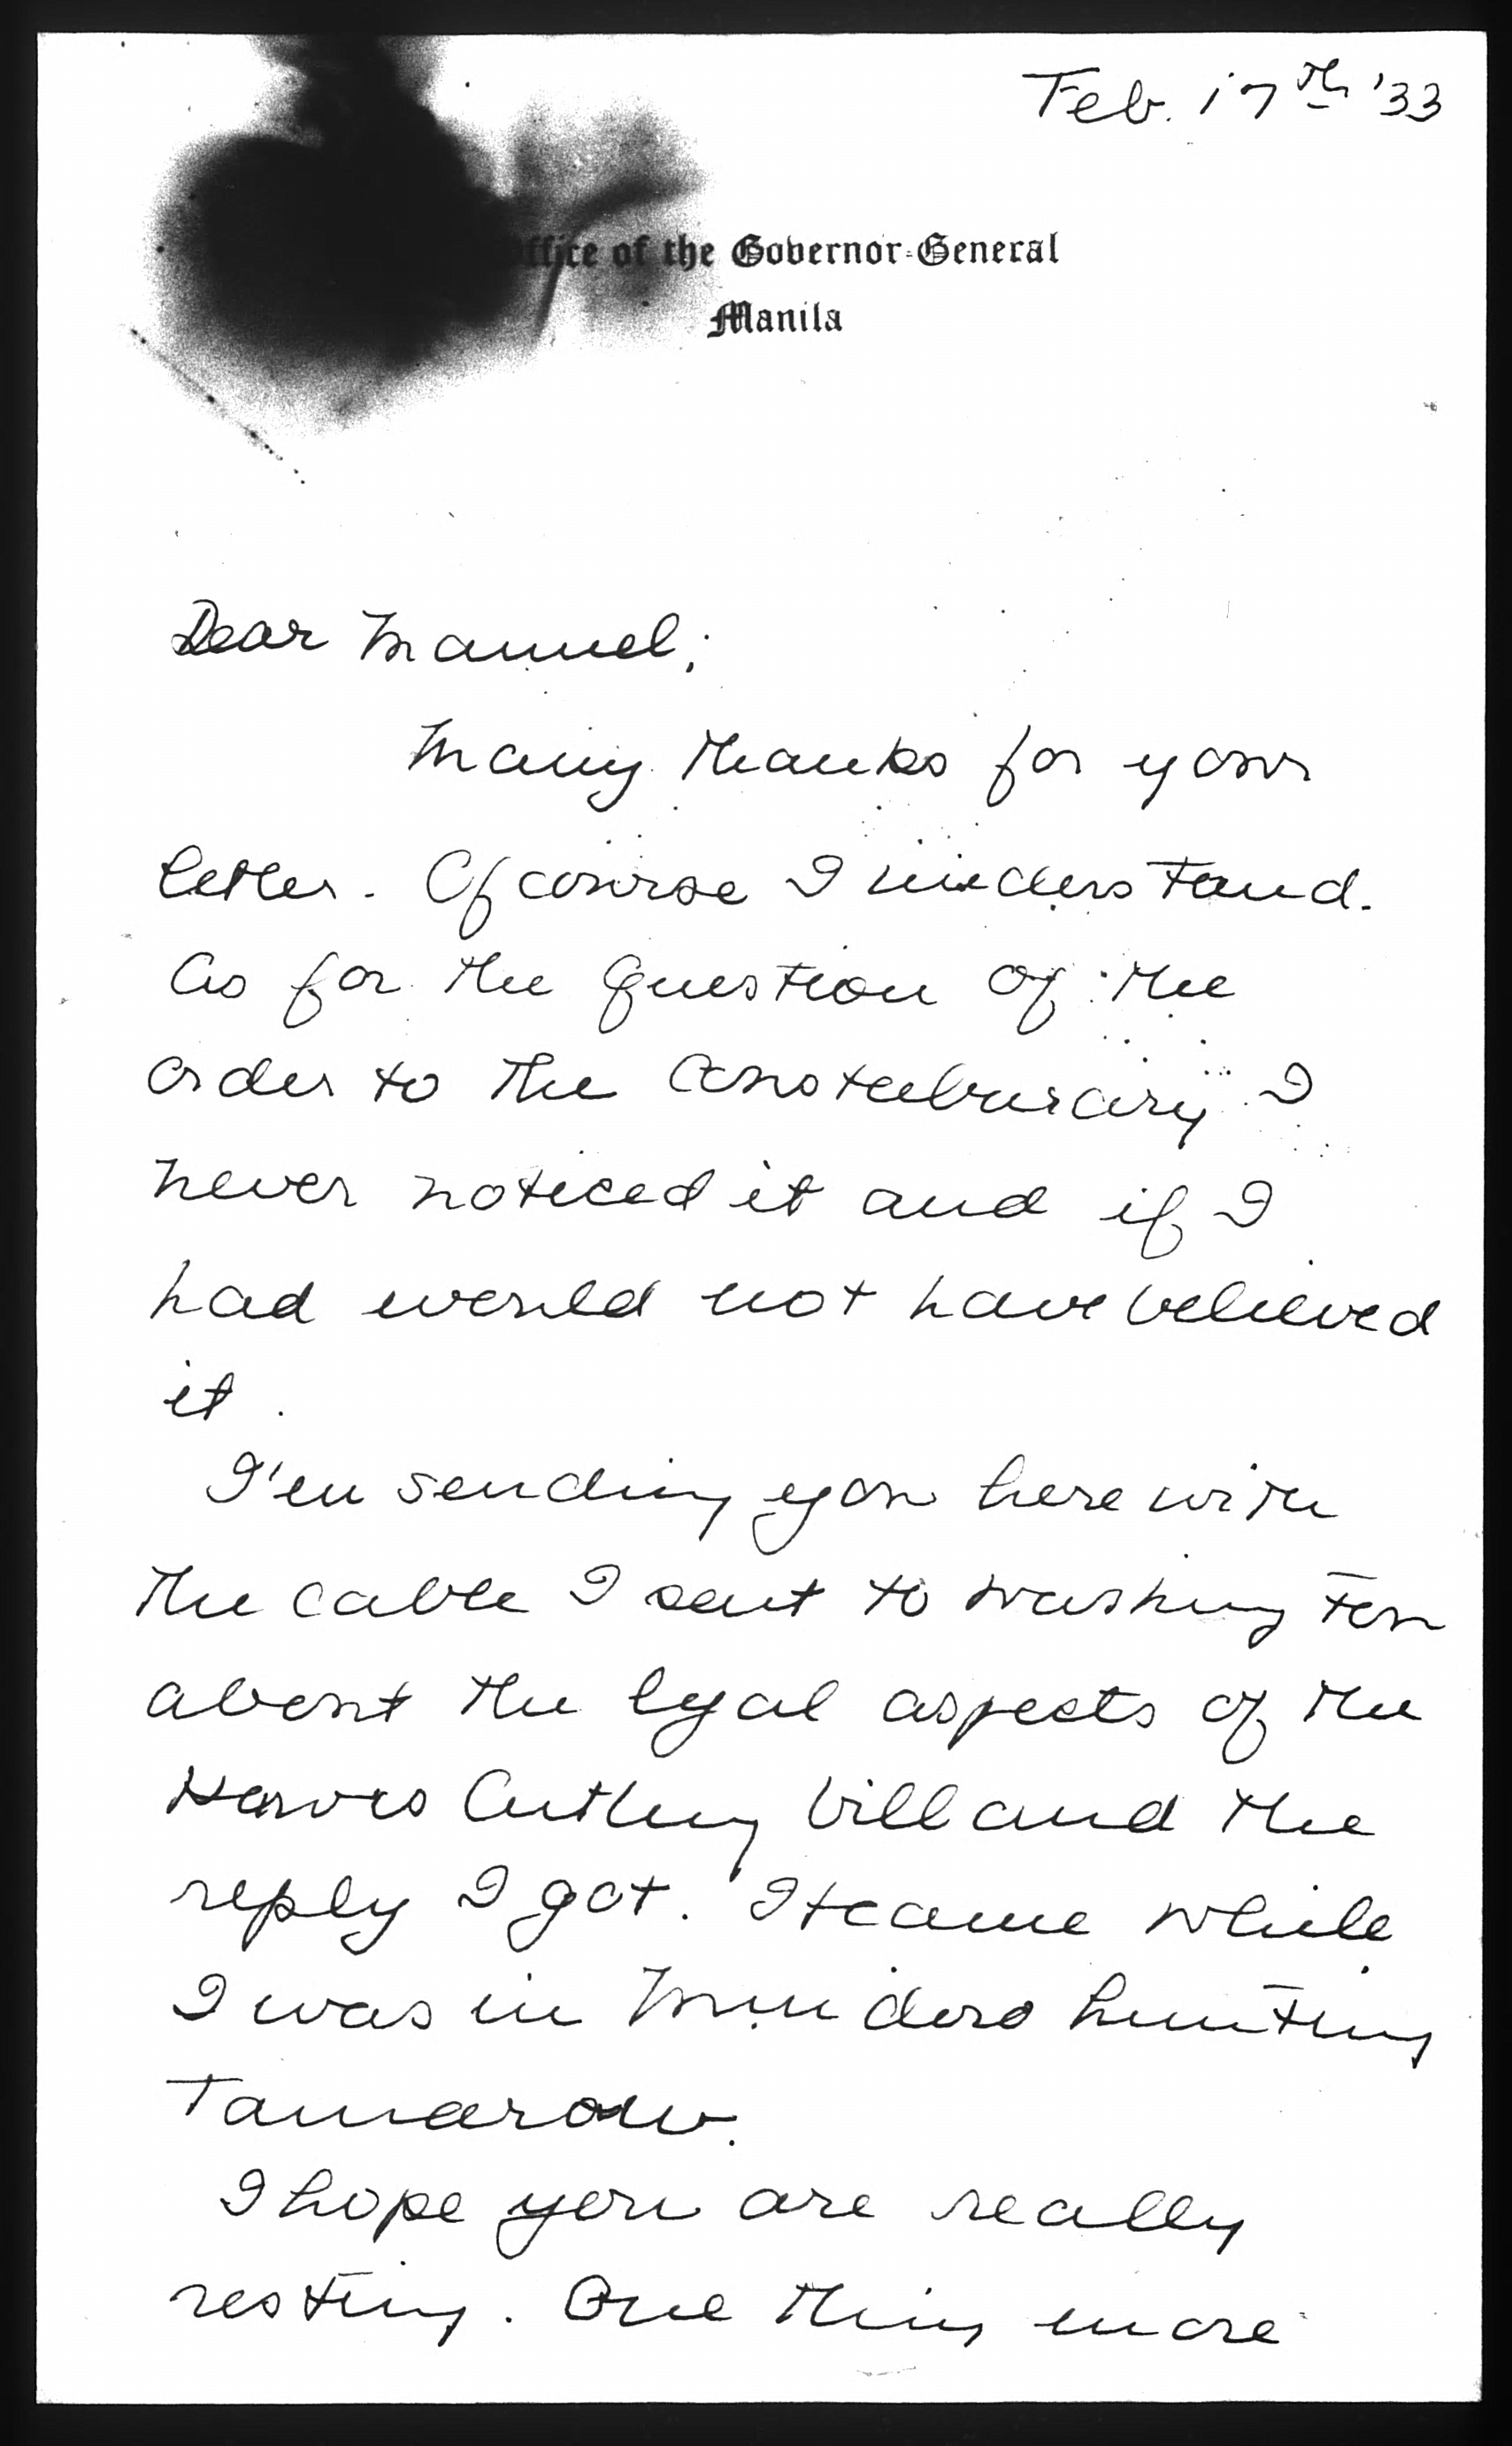 Feb. 17th '33
Office of the Governor-General
Manila
Dear Manuel;
Many thanks for your
letter. Of course I understand.
As for the question of the
order to the Constabulary I
never noticed it and if I
had would not have believed
it.
I'm sending you herewith
the cable I sent to Washington
about the legal aspects of the
Hawes Cutting bill and the
reply I got. It came while
I was in Mindoro hunting
Tamarow.
I hope you are really
resting. One thing more